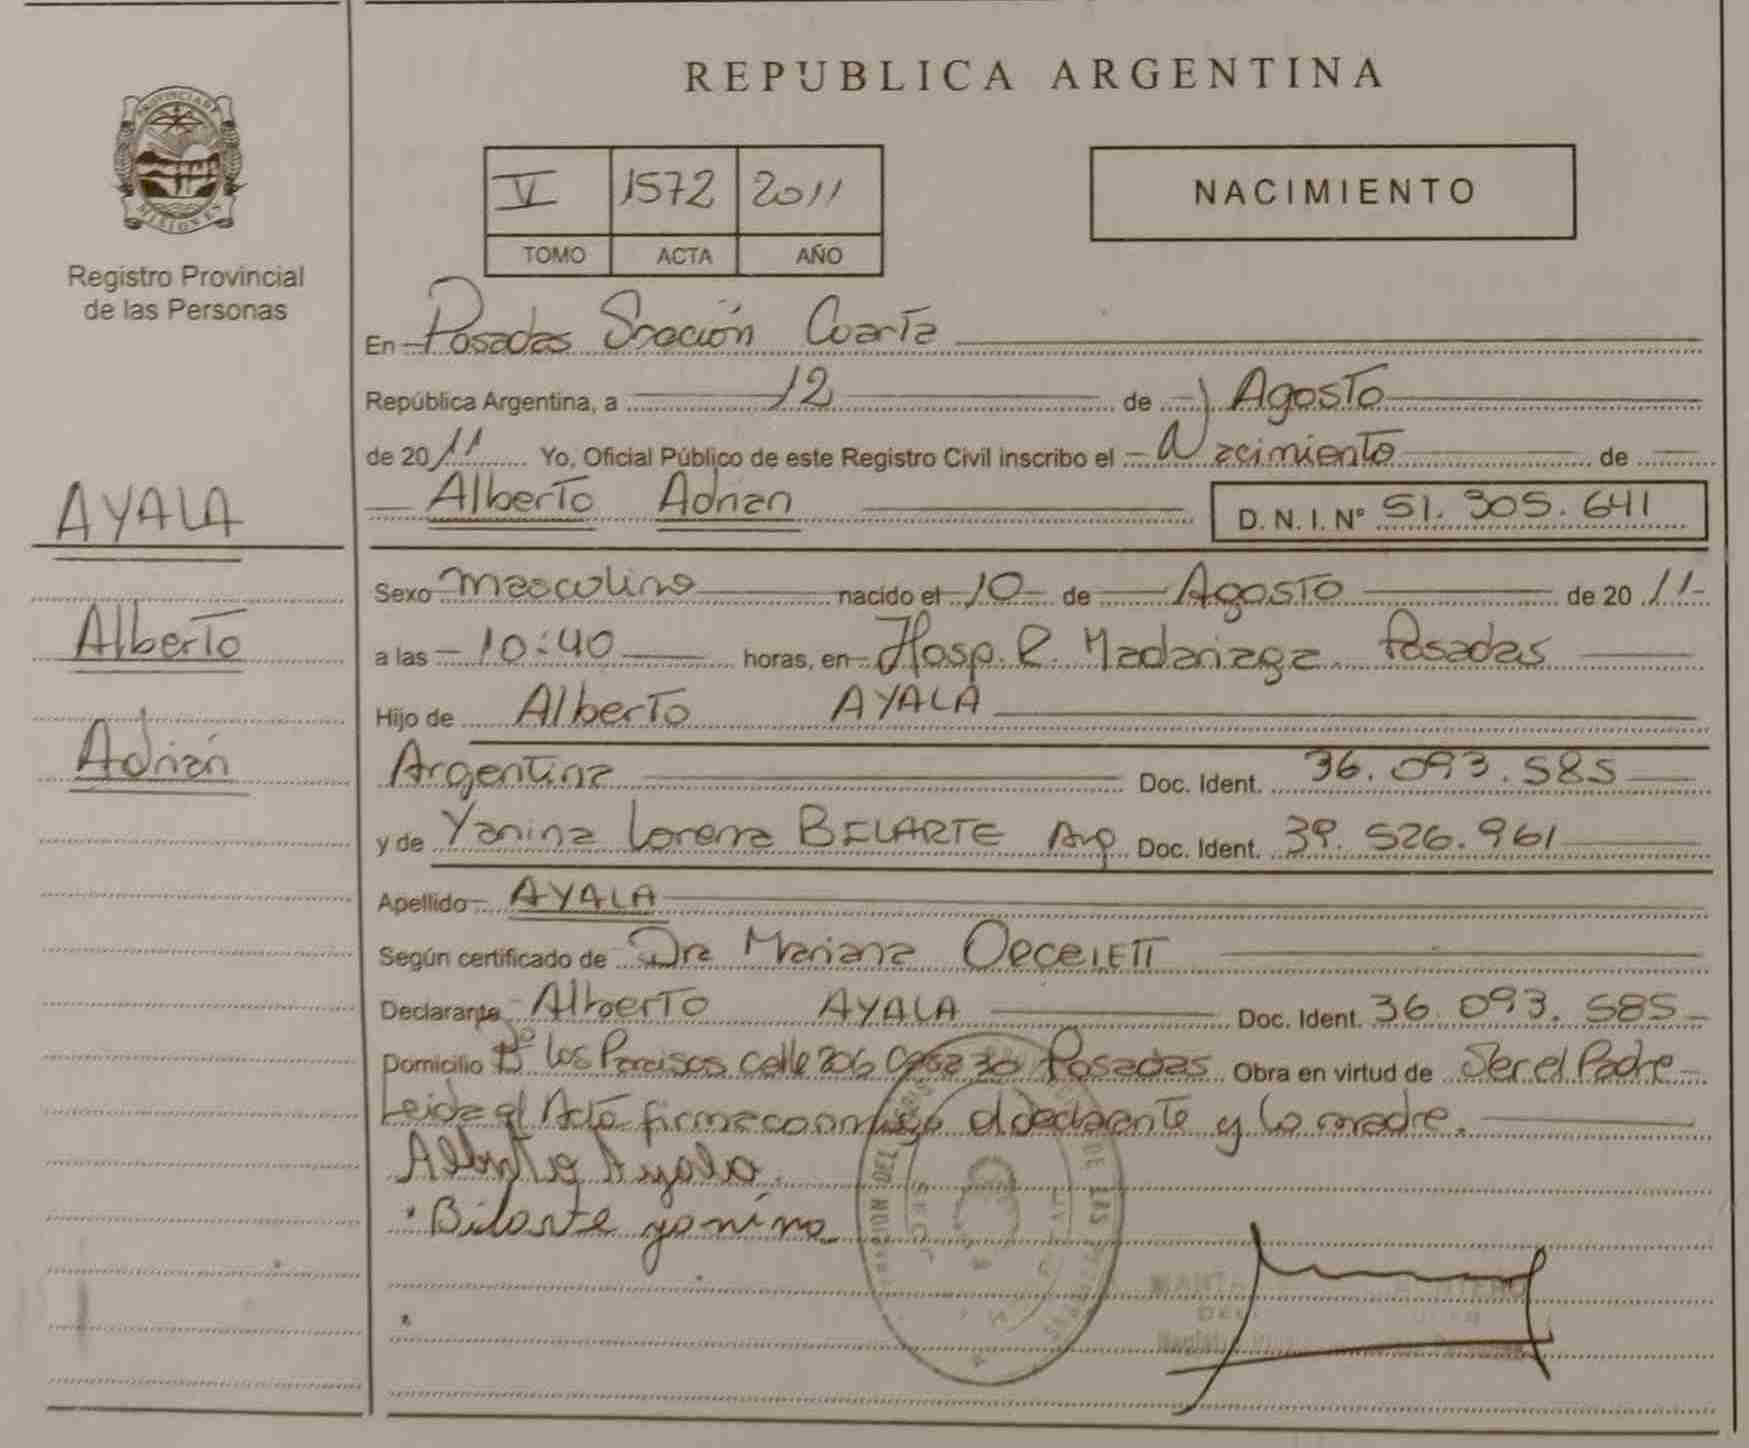 REPUBLICA ARGENTINA
PROVINCIA DE
MISIONES
Registro Provincial
de las Personas
V 1572 2011
TOMO ACTA AÑO
NACIMIENTO
En Posadas Sección Cuarta
República Argentina, a 12 de Agosto
de 2011 Yo, Oficial Público de este Registro Civil inscribo el Nacimiento de
Alberto Adrian D. N. I. Nº 51.305.641
AYALA
Alberto
Adrián
Sexo masculino nacido el 10 de Agosto de 2011
a las 10:40 horas, en Hosp. R. Madariaga Posadas
Hijo de Alberto AYALA
Argentina Doc. Ident. 36.093.585
y de Yanina Lorena BELARTE Arg Doc. Ident. 39.526.961
Apellido AYALA
Según certificado de Dra Mariana
Declarante Alberto AYALA Doc. Ident. 36.093.585
Domicilio Bº los Paraisos calle 206 casa 30 Posadas Obra en virtud de Ser el Padre
Leida el Acta firma conmigo el declarante y la madre.
Alberto Ayala
Bilarte yanina
DE LAS